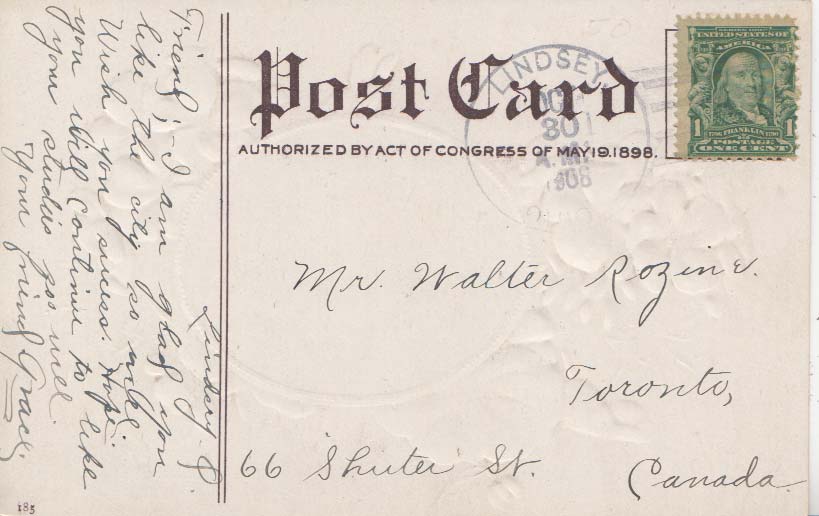 Post Card
AUTHORIZED BY ACT OF CONGRESS OF MAY 19, 1898.
LINDSEY
OCT
30
A.M.
1908
SERIES 1902
UNITED STATES OF
AMERICA
1 FRANKLIN 1
POSTAGE
ONE CENT
Mr. Walter Rozine.
Toronto,
66 Shuter St.
Canada.
Lindsey O.
Friend; I am glad you
like the city so well.
Wish you success. Hope
you will continue to like
your studies
Your friend Grace.
185